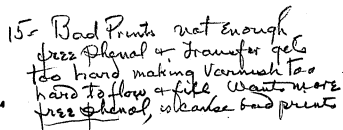 15- Bad Prints not Enough
free phenol & Transfer gets
too hard making Varnish too
hard to flow & fill Want more
free phenol, is cause bad prints